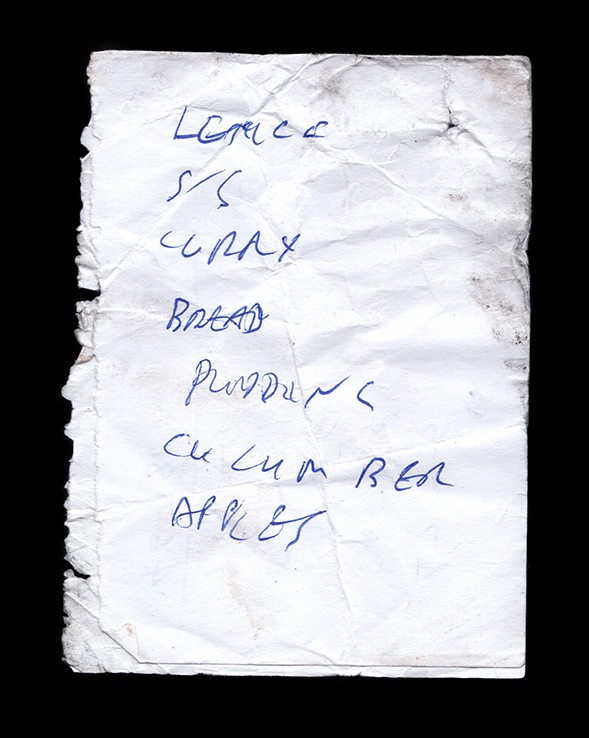 LETTUCE
S/S
CURRY
BREAD
PUDDING
CUCUMBER
APPLES